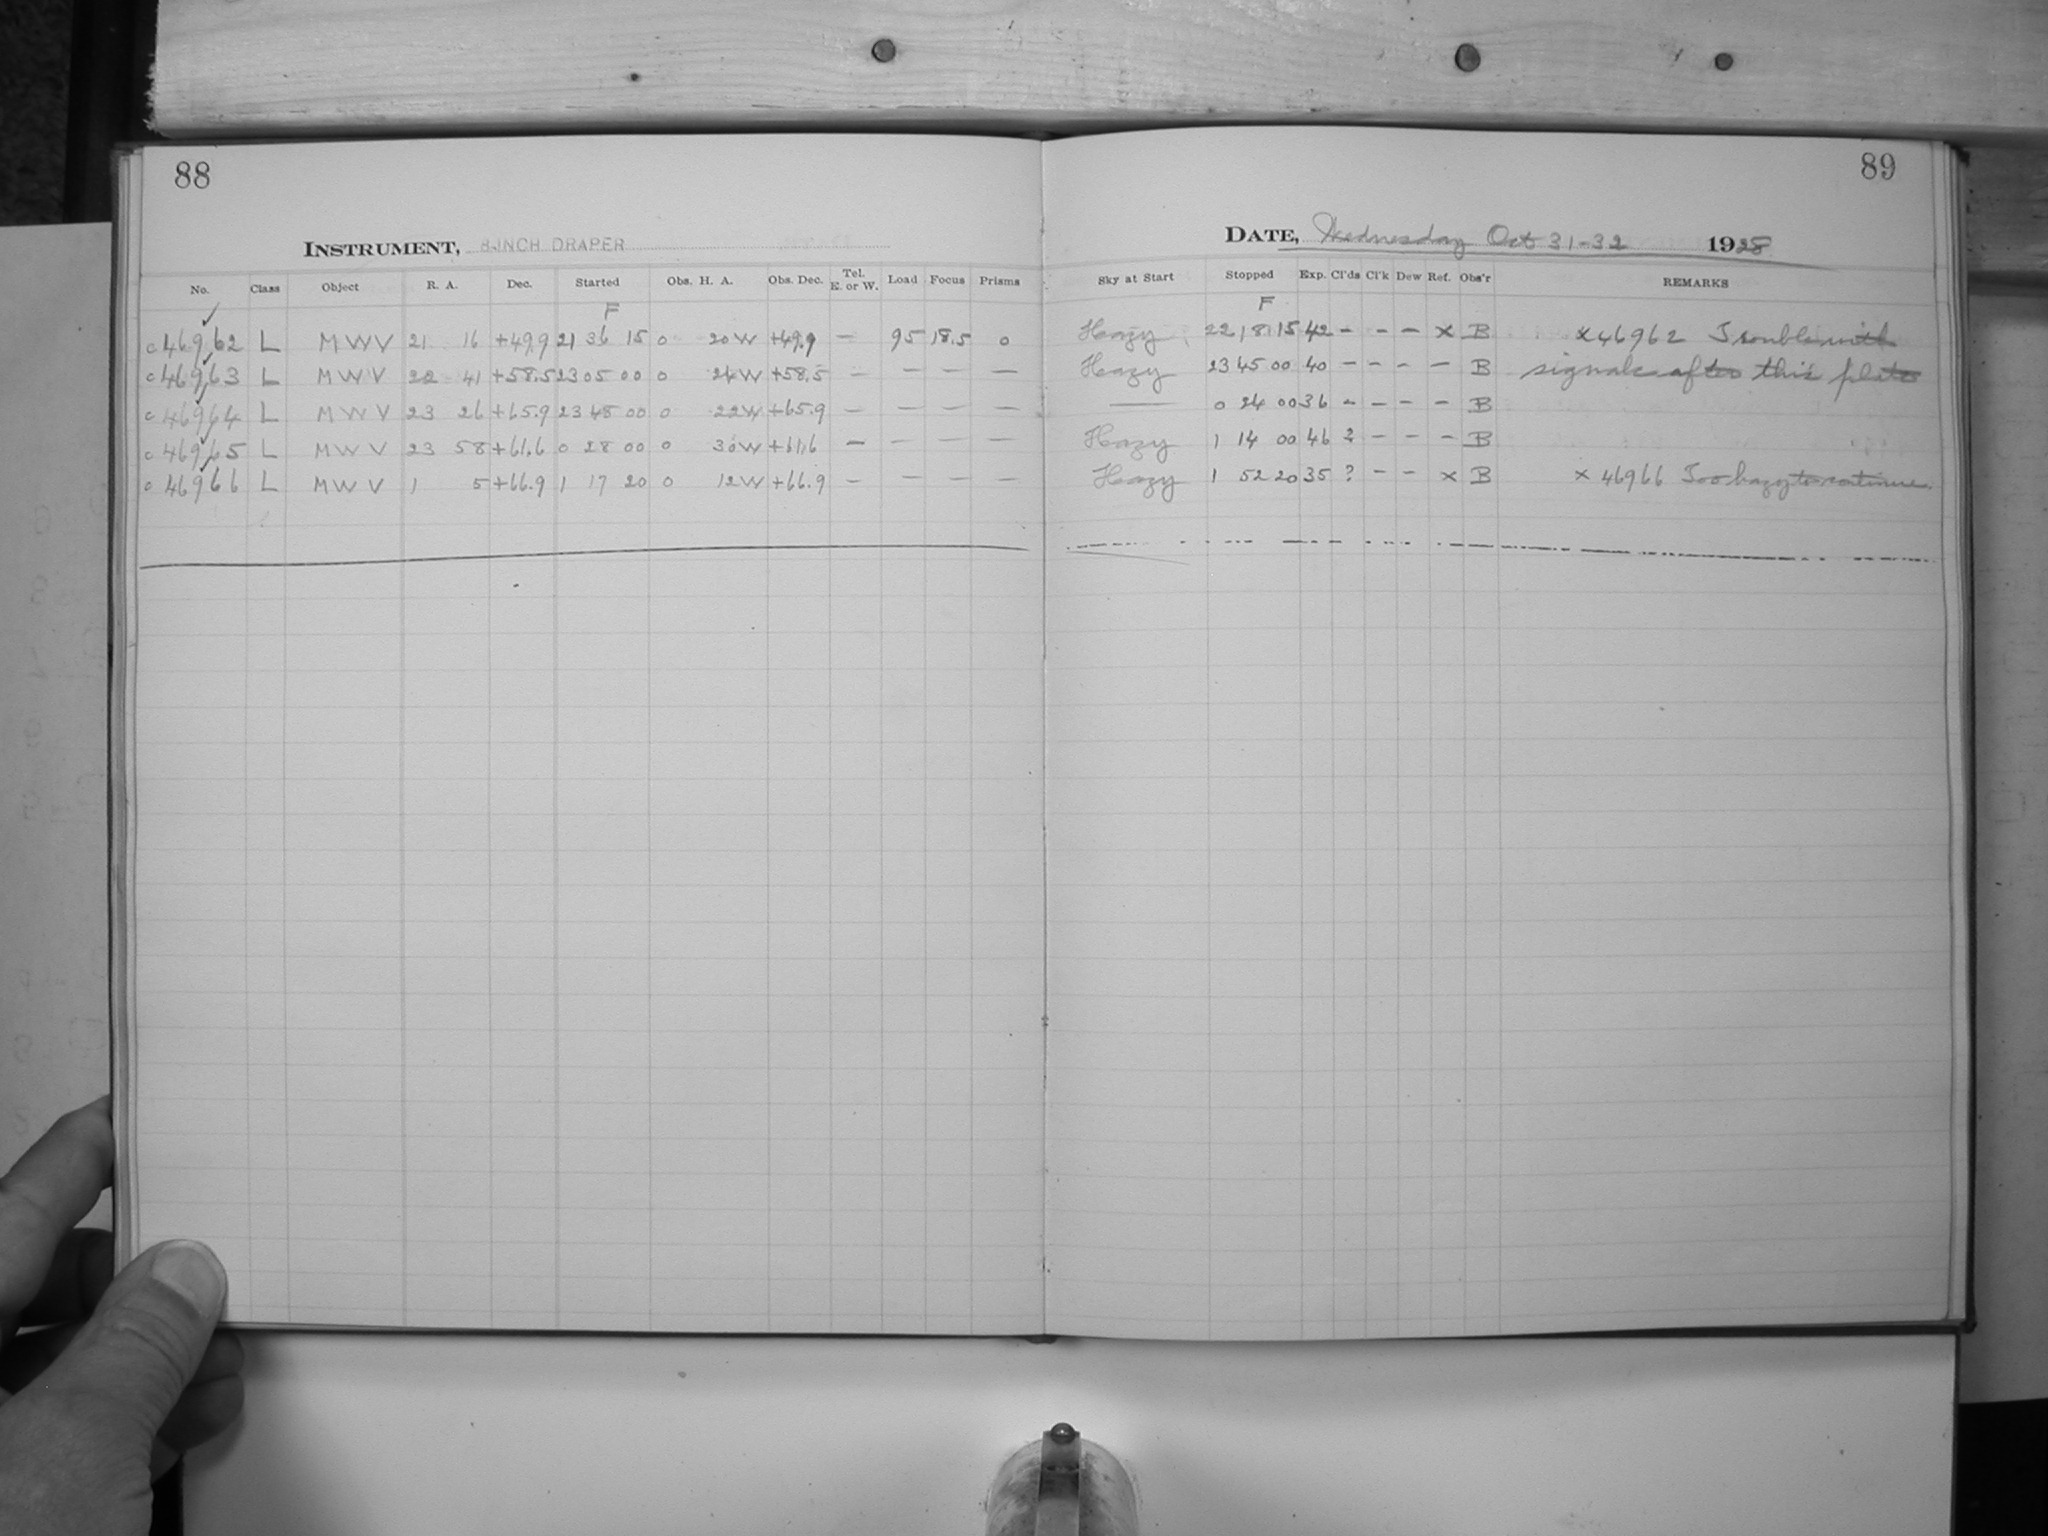 88
INSTRUMENT, 8-INCH DRAPER
No. Class Object R. A. Dec. Started Obs. H. A. Obs. Dec. Tel. E. or W. Load Focus Prisms
F
c 46962 L MWV 21 16 +49.9 21 36 15 0 20W +49.9 — 95 18.5 0
c 46963 L MWV 22 41 +58.5 23 05 00 0 24W +58.5 — — — —
c 46964 L MWV 23 26 +65.9 23 48 00 0 22W +65.9 — — — —
c 46965 L MWV 23 58 +61.6 0 28 00 0 30W +61.6 — — — —
c 46966 L MWV 1 5 +66.9 1 17 20 0 12W +66.9 — — — —
89
DATE, Wednesday Oct 31-32 1928
Sky at Start Stopped Exp. Cl'ds Cl'k Dew Ref. Obs'r REMARKS
F
Hazy 22 18 15 42 – – – x B x46962 Trouble with
Hazy 23 45 00 40 – – – – B signals after this plate
— 0 24 00 36 – – – – B
Hazy 1 14 00 46 ? – – – B
Hazy 1 52 20 35 ? – – x B x 46966 Too hazy to continue.